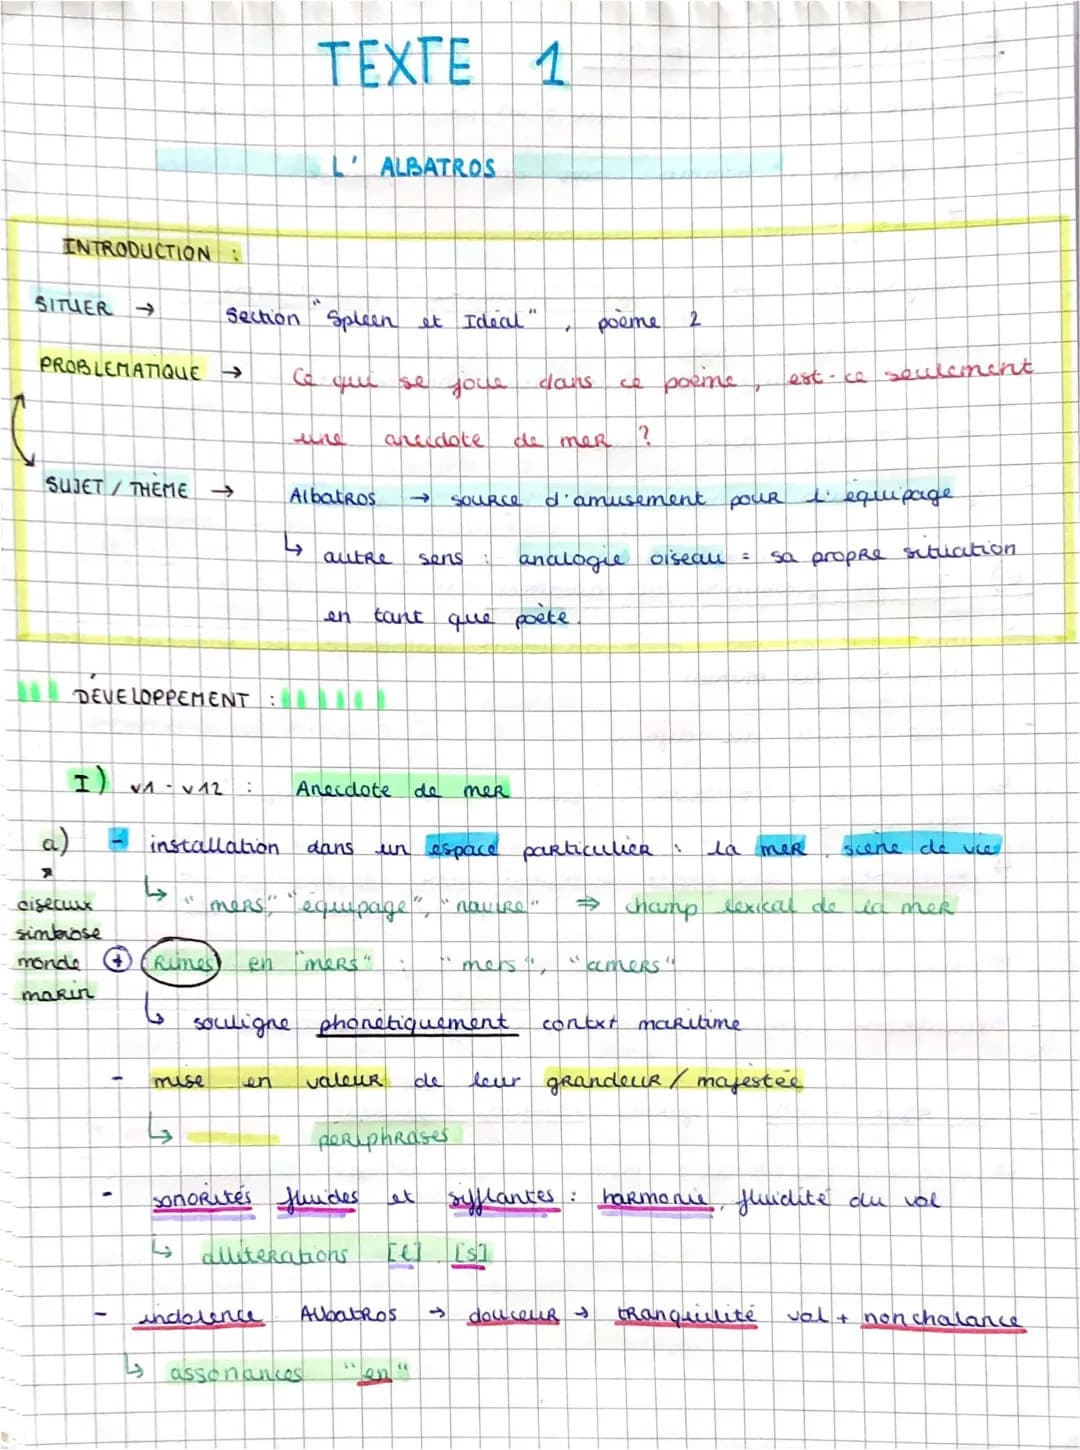 TEXTE 1
L' ALBATROS
INTRODUCTION :
SITUER → Section "Spleen et Idéal", poème 2
PROBLEMATIQUE → Ce qui se joue dans ce poème, est-ce seulement
une anecdote de mer ?
SUJET / THÈME → Albatros → source d'amusement pour l'équipage
↳ autre sens : analogie oiseau = sa propre situation
en tant que poète.
DÉVELOPPEMENT :
I) v1 - v12 : Anecdote de mer
a) - installation dans un espace particulier : la mer, scène de vie
↳ "mers", "équipage", "navire" ⇒ champ lexical de la mer
oiseaux
simbiose
monde
marin
+ Rimes en "mers" : "mers", "amers"
↳ souligne phonétiquement contxt maritime
- mise en valeur de leur grandeur / majestée
↳ périphrases
- sonorités fluides et sifflantes : harmonie, fluidité du vol
↳ allitérations [l] [s]
- indolence Albatros → douceur → tranquilité vol + nonchalance
↳ assonances "en"